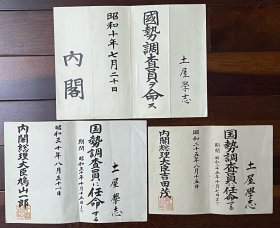 土屋學志
國勢調査員ヲ命ス
昭和十年七月二十日
内閣
土屋學志
国勢調査員に任命する
昭和三十年八月三十一日
内閣総理大臣鳩山一郎
土屋學志
国勢調査員に任命する
昭和二十五年八月十五日
内閣総理大臣吉田茂